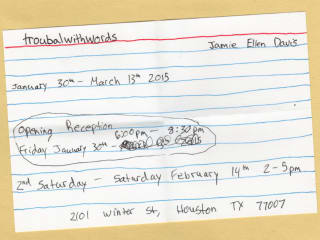 troubalwithwords
Jamie Ellen Davis
January 30th - March 13th 2015
Opening Reception
6:00pm - 8:30pm
Friday January 30th -
2nd Saturday - Saturday February 14th 2-5pm
2101 Winter St, Houston TX 77007